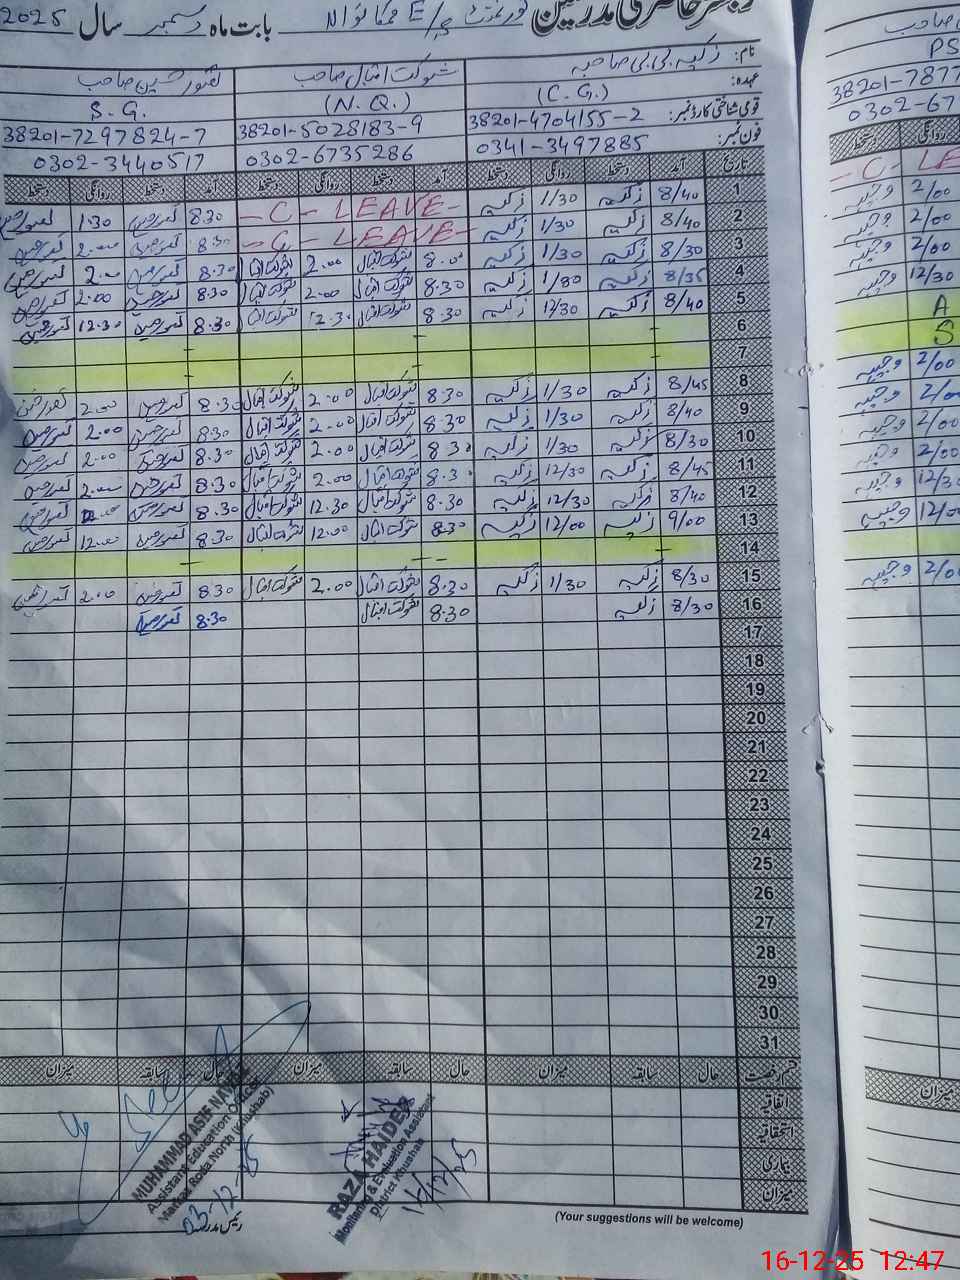 رجسٹر حاضری مدرسین گورنمنٹ E/S بابت ماہ دسمبر سال 2025
نام: زکیہ بی بی صاحبہ شوکت اقبال صاحب تصور حسین صاحب
عہدہ: (C.G.) (N.Q.) S.G.
قومی شناختی کارڈ نمبر: 38201-4704155-2 38201-5028183-9 38201-7297824-7
فون نمبر: 0341-3497885 0302-6735286 0302-3440517
تاریخ آمد دستخط روانگی دستخط آمد دستخط روانگی دستخط آمد دستخط روانگی دستخط
1 8/40 زکیہ 1/30 زکیہ -C- LEAVE- 8.30 تصور حسین 1.30 تصور حسین
2 8/40 زکیہ 1/30 زکیہ -C- LEAVE- 8.30 تصور حسین 2.00 تصور حسین
3 8/30 زکیہ 1/30 زکیہ 8.00 شوکت اقبال 2.00 شوکت اقبال 8.30 تصور حسین 2.00 تصور حسین
4 8/35 زکیہ زکیہ 8.30 شوکت اقبال 2.00 شوکت اقبال 8.30 تصور حسین 2.00 تصور حسین
5 8/40 زکیہ 12/30 زکیہ 8.30 شوکت اقبال 12.30 شوکت اقبال 8.30 تصور حسین 12.30 تصور حسین
6 – – –
7 – – –
8 8/45 زکیہ 1/30 زکیہ 8.30 شوکت اقبال 2.00 شوکت اقبال 8.30 تصور حسین 2.00 تصور حسین
9 8/40 زکیہ 1/30 زکیہ 8.30 شوکت اقبال 2.00 شوکت اقبال 8.30 تصور حسین 2.00 تصور حسین
10 8/30 زکیہ 1/30 زکیہ 8.30 شوکت اقبال 2.00 شوکت اقبال 8.30 تصور حسین 2.00 تصور حسین
11 8/45 زکیہ 12/30 زکیہ 8.30 شوکت اقبال 2.00 شوکت اقبال 8.30 تصور حسین 2.00 تصور حسین
12 8/40 زکیہ 12/30 زکیہ 8.30 شوکت اقبال 12.30 شوکت اقبال 8.30 تصور حسین تصور حسین
13 9/00 زکیہ 12/00 زکیہ 8.30 شوکت اقبال 12.00 شوکت اقبال 8.30 تصور حسین 12.00 تصور حسین
14 – – – –
15 8/30 زکیہ 1/30 زکیہ 8.30 شوکت اقبال 2.00 شوکت اقبال 8.30 تصور حسین 2.00 تصور حسین
16 8/30 زکیہ 8.30 شوکت اقبال 8.30 تصور حسین
17
18
19
20
21
22
23
24
25
26
27
28
29
30
31
قسم رخصت حال سابقہ میزان حال سابقہ میزان حال سابقہ میزان
اتفاقیہ
استحقاقیہ
بیماری
میزان
MUHAMMAD ASIF NAWAZ
Assistant Education Officer
Markaz Roda North (Khushab)
03-12-25
رئیس مدرسہ
RAZA HAIDER
Monitoring & Evaluation Assistant
District Khushab
(Your suggestions will be welcome)
صاحب
PS
38201-7877
0302-67
دستخط
-C- LE
وجیہہ 2/00
وجیہہ 2/00
وجیہہ 2/00
وجیہہ 12/30
A
S
وجیہہ 2/00
وجیہہ 2/00
وجیہہ 2/00
وجیہہ 2/00
وجیہہ 12/30
وجیہہ 12/00
وجیہہ 2/00
میزان
16-12-25 12:47